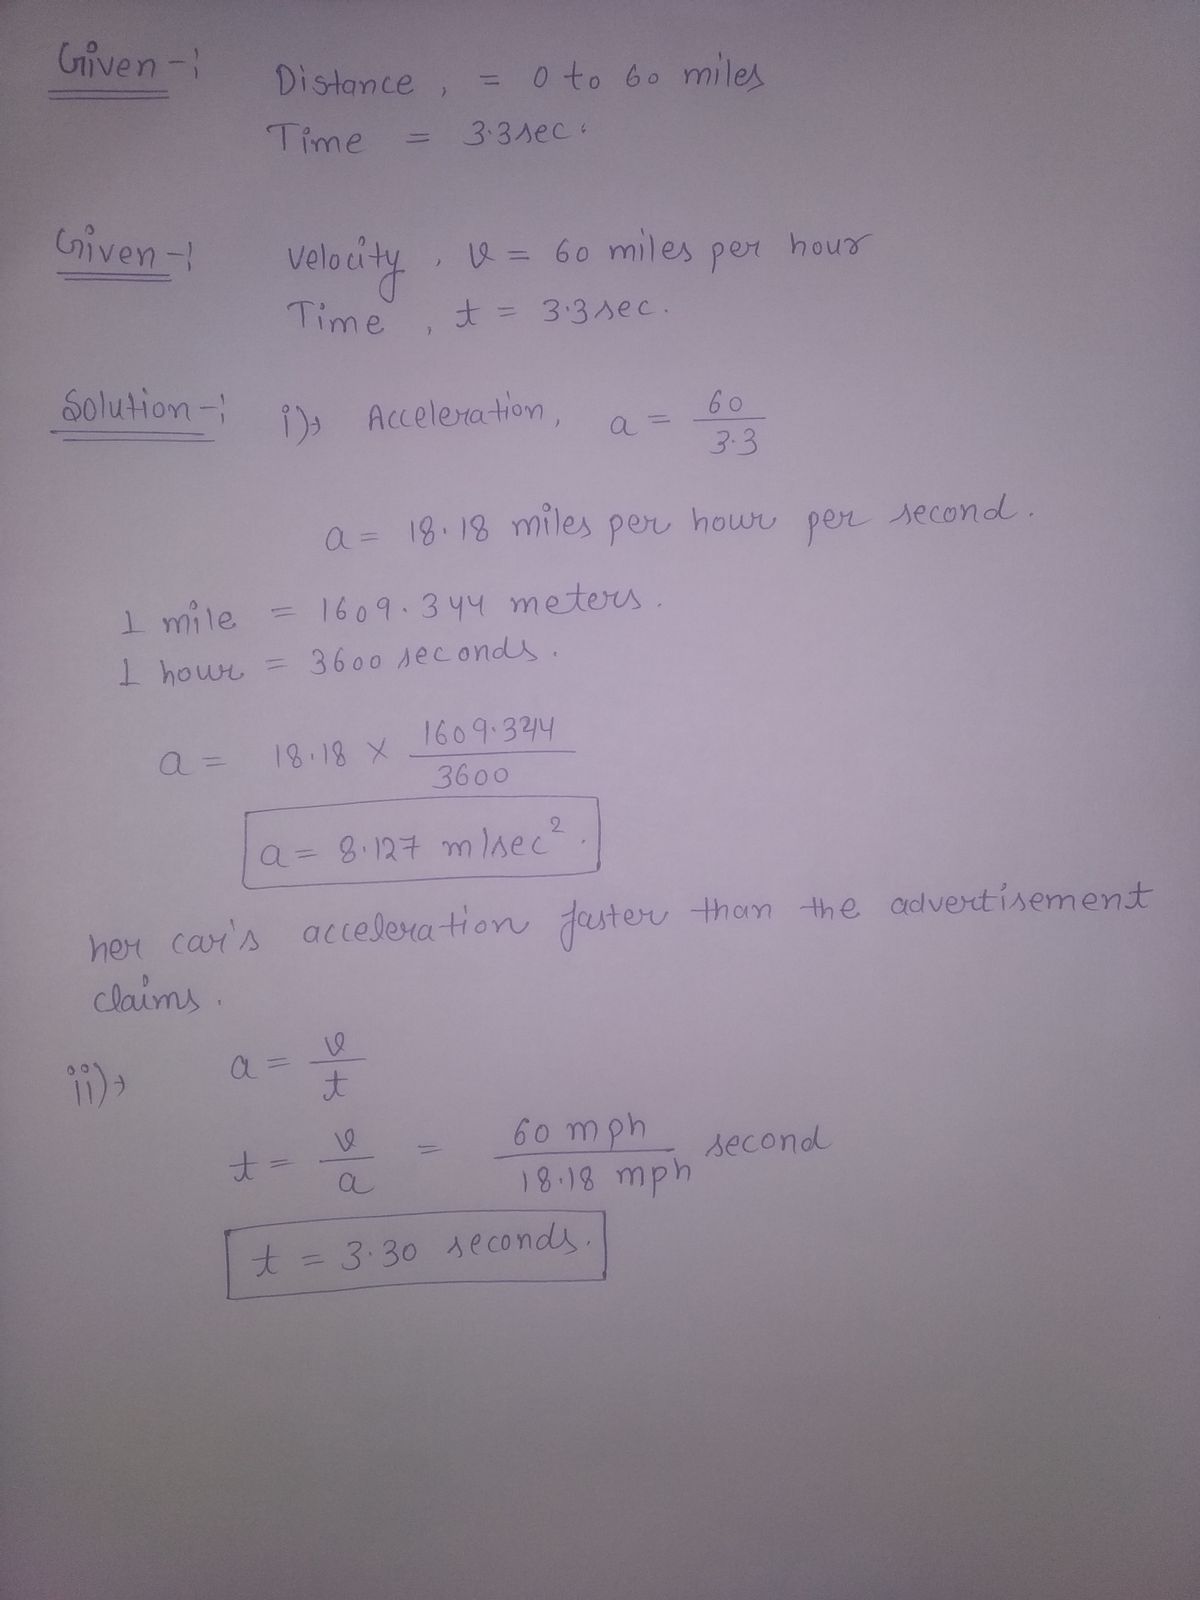 Given -:
Distance, = 0 to 60 miles
Time = 3.3 sec.
Given -:
Velocity, v = 60 miles per hour
Time, t = 3.3 sec.
Solution -:
i)→ Acceleration, a = 60 / 3.3
a = 18.18 miles per hour per second.
1 mile = 1609.344 meters.
1 hour = 3600 seconds.
a = 18.18 × 1609.344 / 3600
a = 8.127 m/sec².
her car's acceleration faster than the advertisement
claims.
ii)→ a = v / t
t = v / a = 60 mph / 18.18 mph second
t = 3.30 seconds.